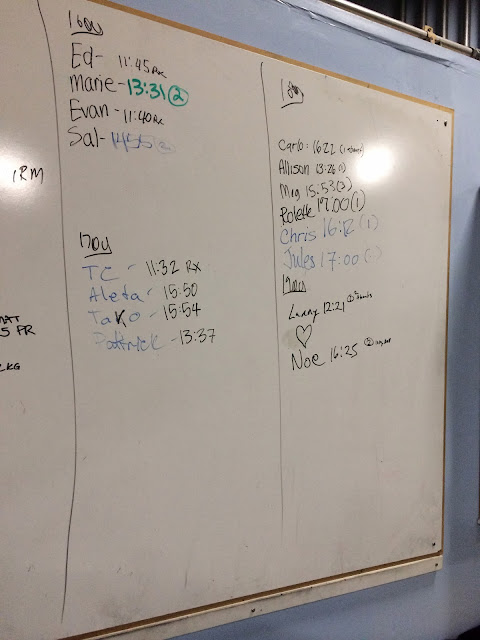 1RM
PR
KG
1600
Ed- 11:45 Rx
Marie-13:31 ②
Evan - 11:40 Rx
Sal- 14:55
1700
TC - 11:32 RX
Aleta - 15:50
Tako - 15:54
Pattrick -13:37
1800
Carlo: 1622
Allison 13:26
Meg 15:53 (3)
Rolette 17:00 (1)
Chris 16:12 (1)
Jules 17:00
1900
Lanny 12:21
Noe 16:25 ②